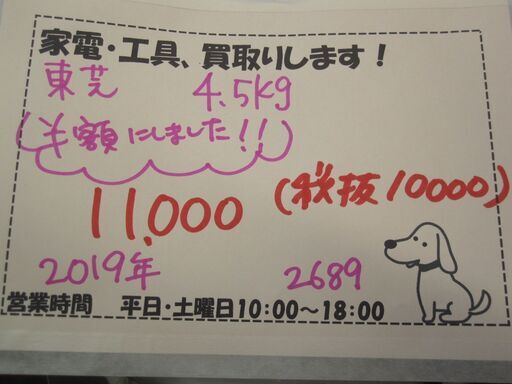 家電・工具、買取りします！
東芝 4.5kg
(半額にしました!!)
11,000 (税抜10000)
2019年 2689
営業時間 平日・土曜日10:00〜18:00